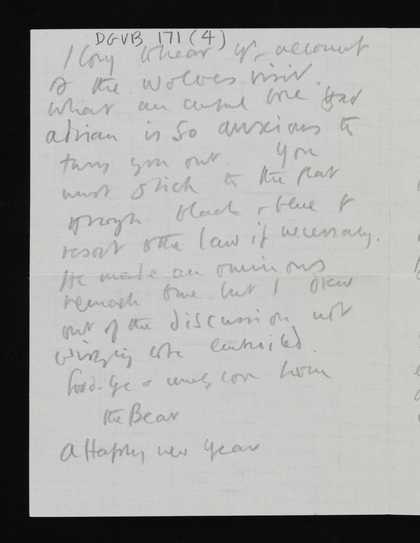 DGVB 171 (4)
I long to hear yr. account
of the Wolves visit.
What an awful bore that
Adrian is so anxious to
turn you out. You
must stick to the flat
through black & blue &
resort to the law if necessary.
He made an ominous
remark to me but I drew
out of the discussion not
wishing to be embroiled.
Good-bye & much love from
the Bear
A Happy New Year